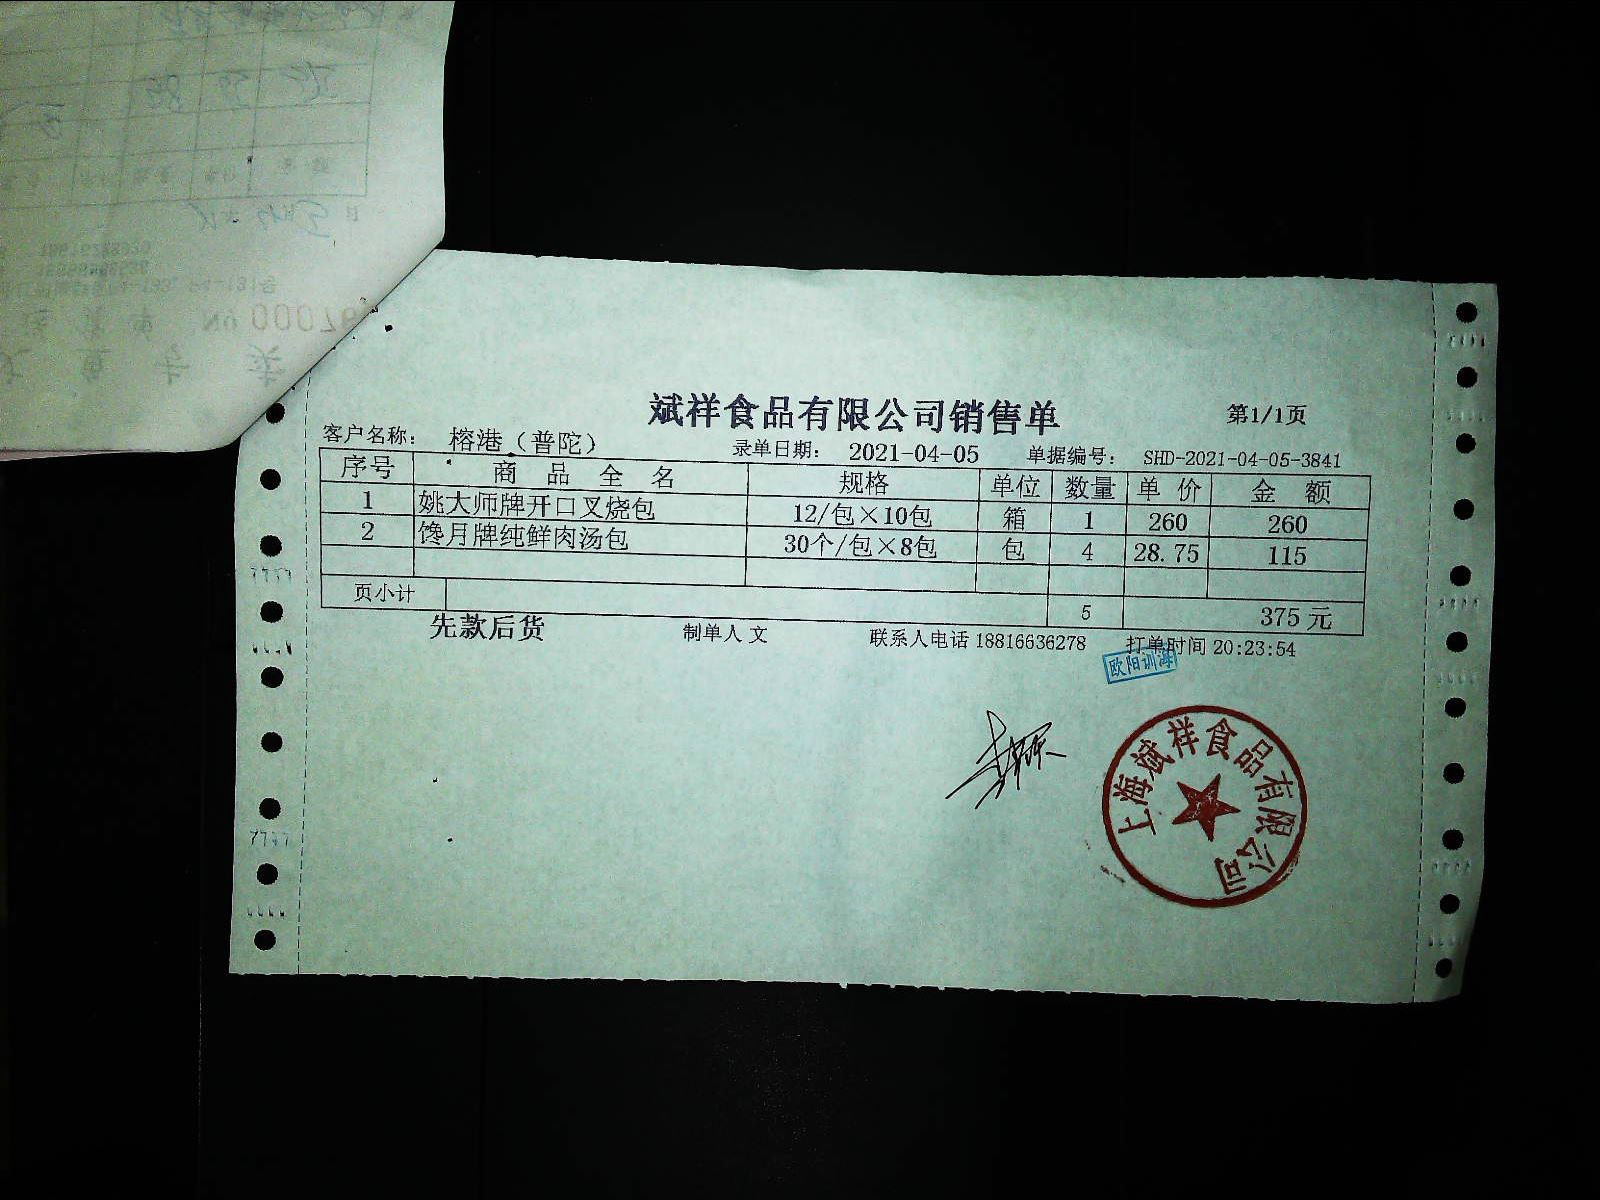 斌祥食品有限公司销售单 第1/1页
客户名称: 榕港(普陀) 录单日期: 2021-04-05 单据编号: SHD-2021-04-05-3841
序号 商品全名 规格 单位 数量 单价 金额
1 姚大师牌开口叉烧包 12/包×10包 箱 1 260 260
2 馋月牌纯鲜肉汤包 30个/包×8包 包 4 28.75 115
页小计 5 375元
先款后货 制单人 文 联系人电话 18816636278 打单时间 20:23:54
欧阳训海
上海斌祥食品有限公司